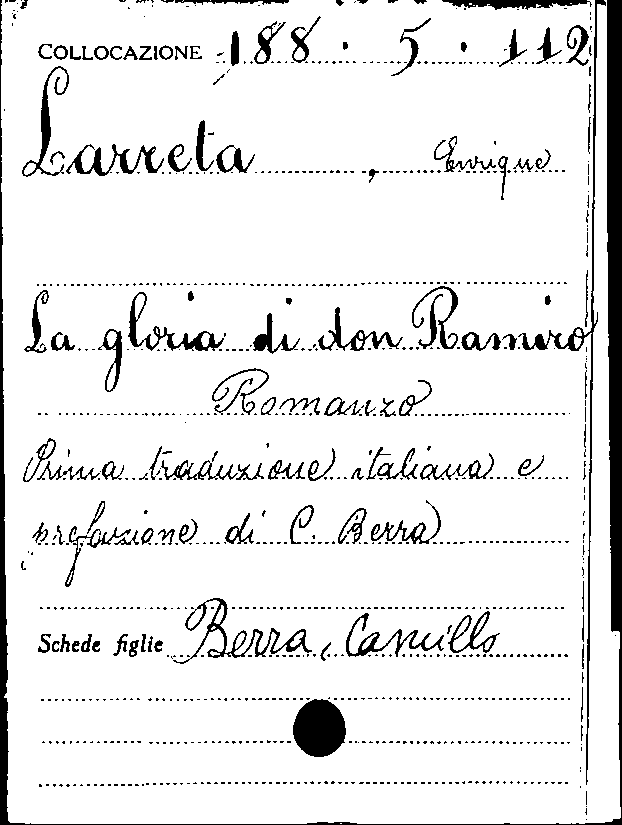 COLLOCAZIONE 188 · 5 · 112
Larreta, Enrique
La gloria di don Ramiro
Romanzo
Prima traduzione italiana e
prefazione di C. Berra
Schede figlie Berra, Camillo